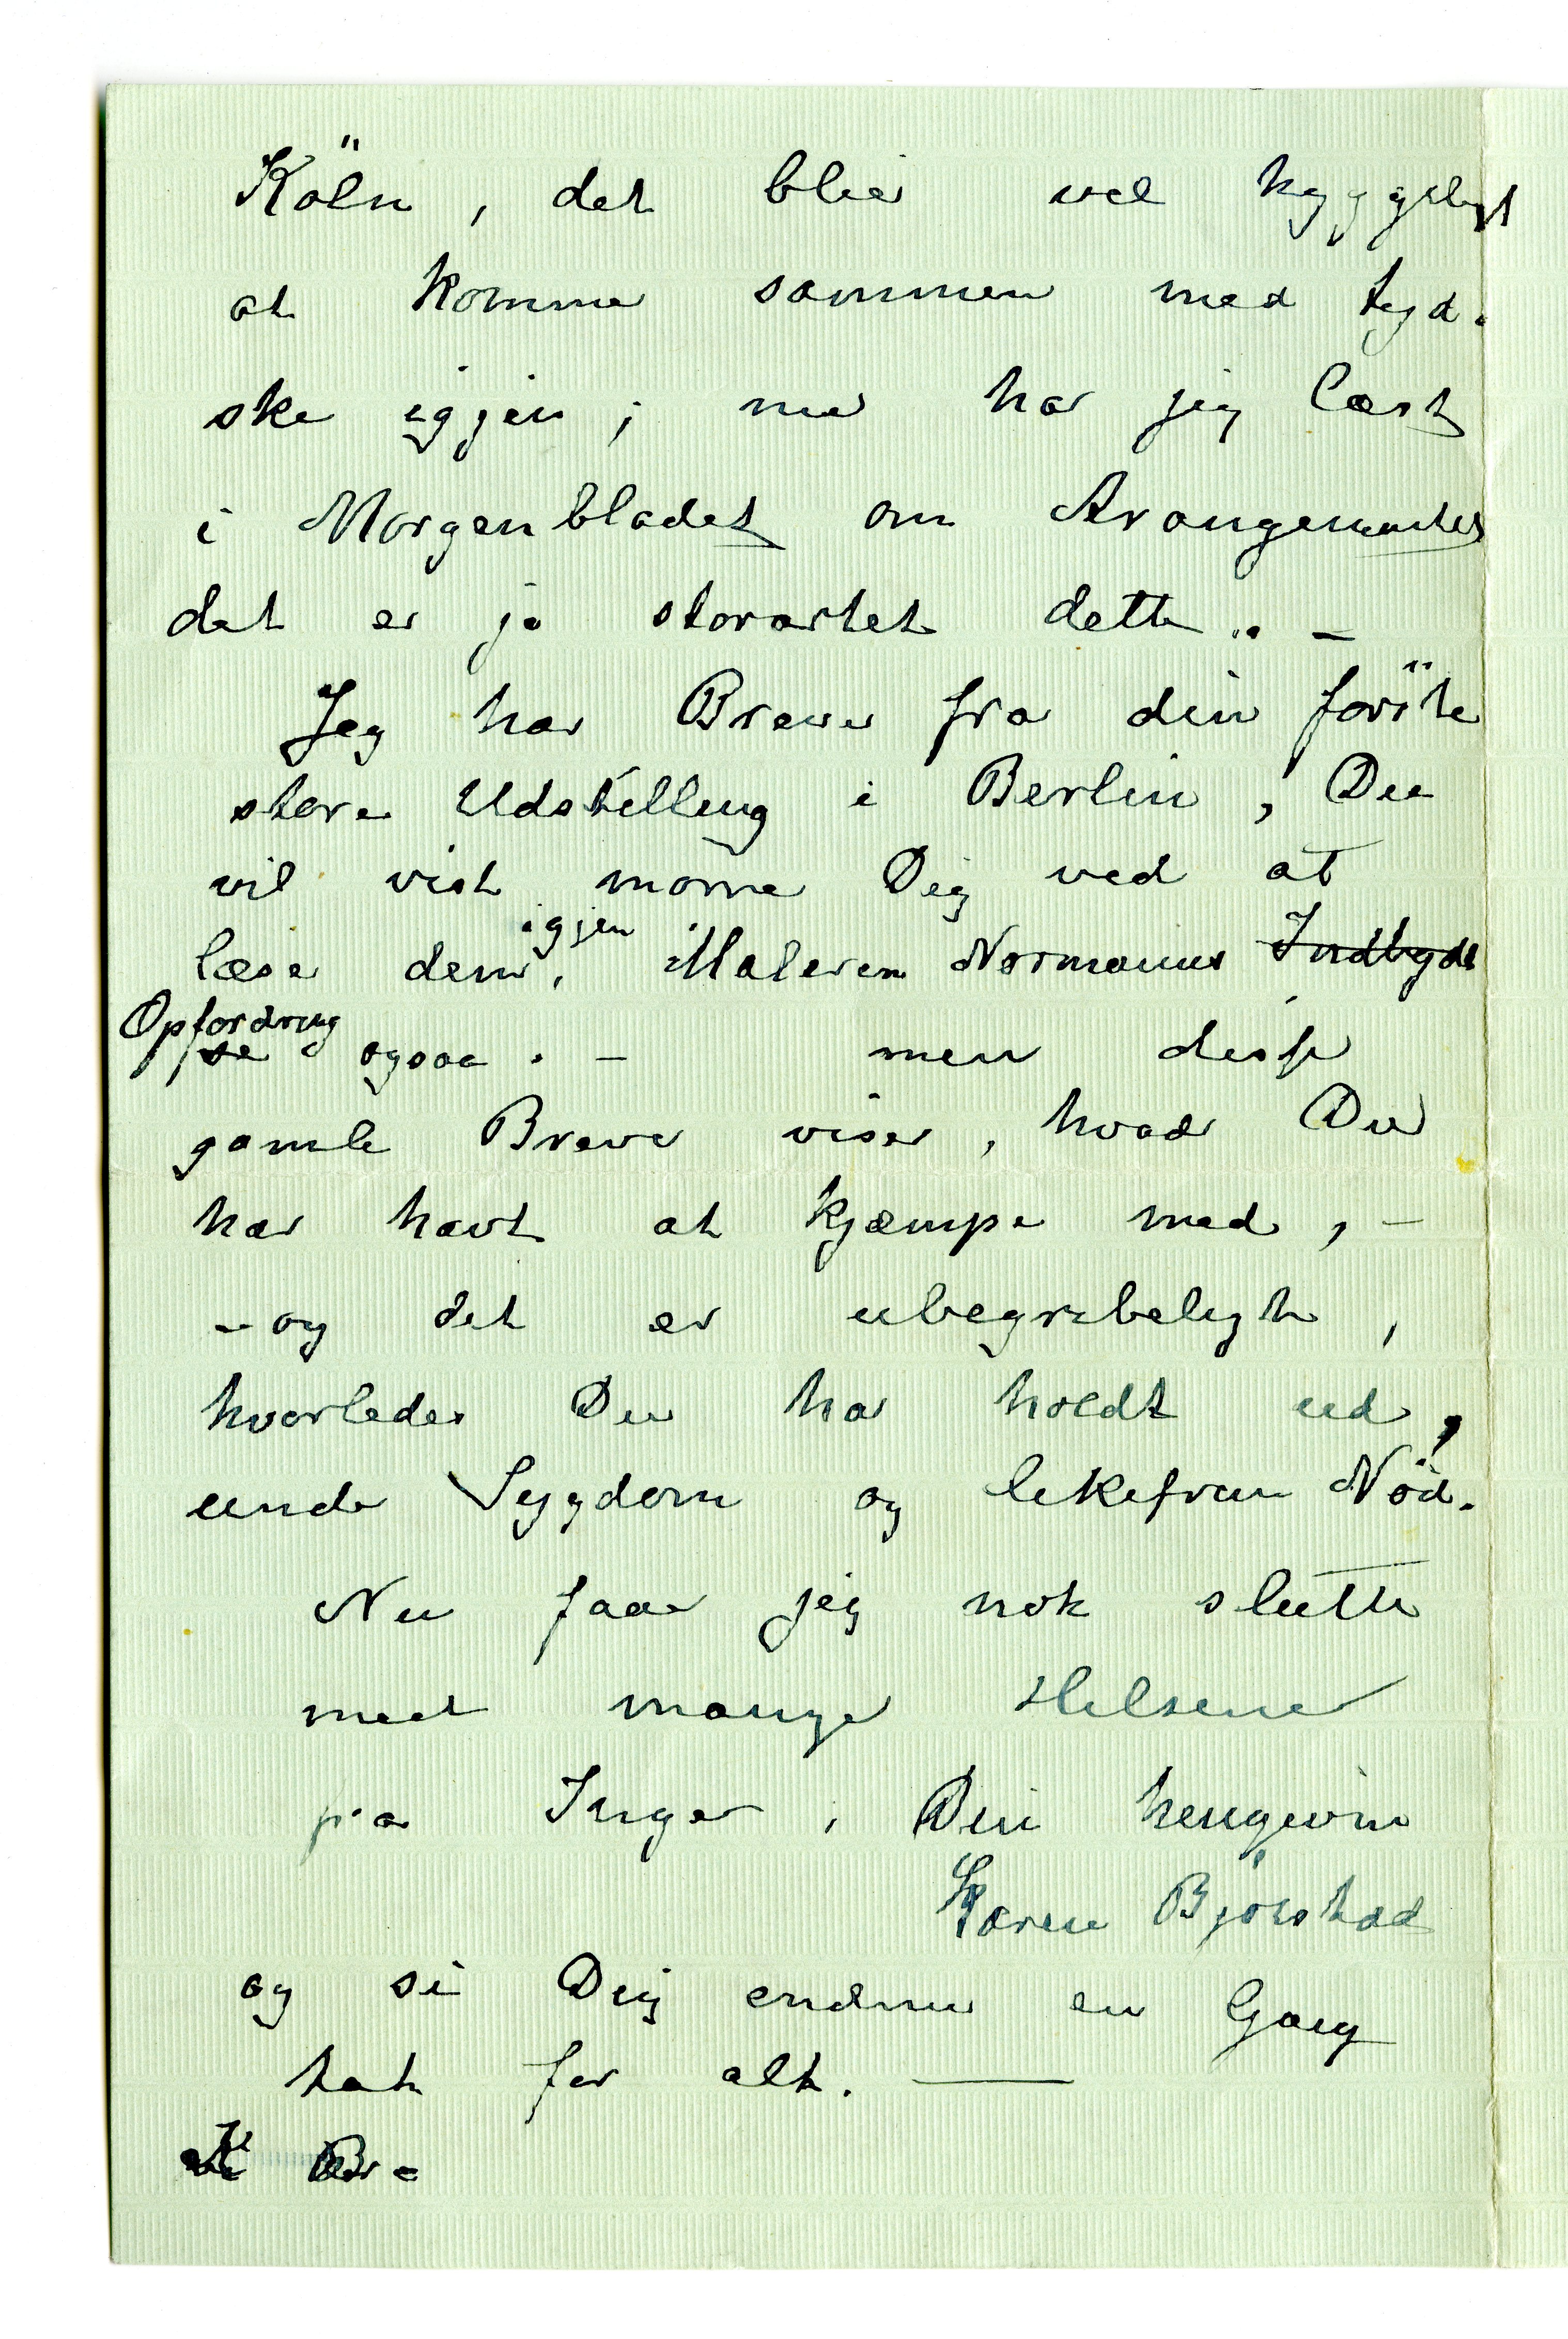 Köln, det blir vel hyggeligt
at komme sammen med tyd-
ske igjen; nu har jeg læst
i Morgenbladet om Arangementet
det er jo storartet dette.. –
Jeg har Breve fra din förste
store Udstilling i Berlin, Du
vil vist more Dig ved at
læse dem igjen, Maleren Normanns Indbyde
Opfordring se ogsaa. – men disse
gamle Breve viser, hvad Du
har havt at kjæmpe med, –
– og det er ubegribeligt,
hvorledes Du har holdt ud,
under Sygdom og likefrem Nöd.
Nu faar jeg nok slutte
med mange Hilsener
fra Inger, Din hengivne
Karen Bjölstad
og si Dig endnu en Gang
tak for alt. —
K B-